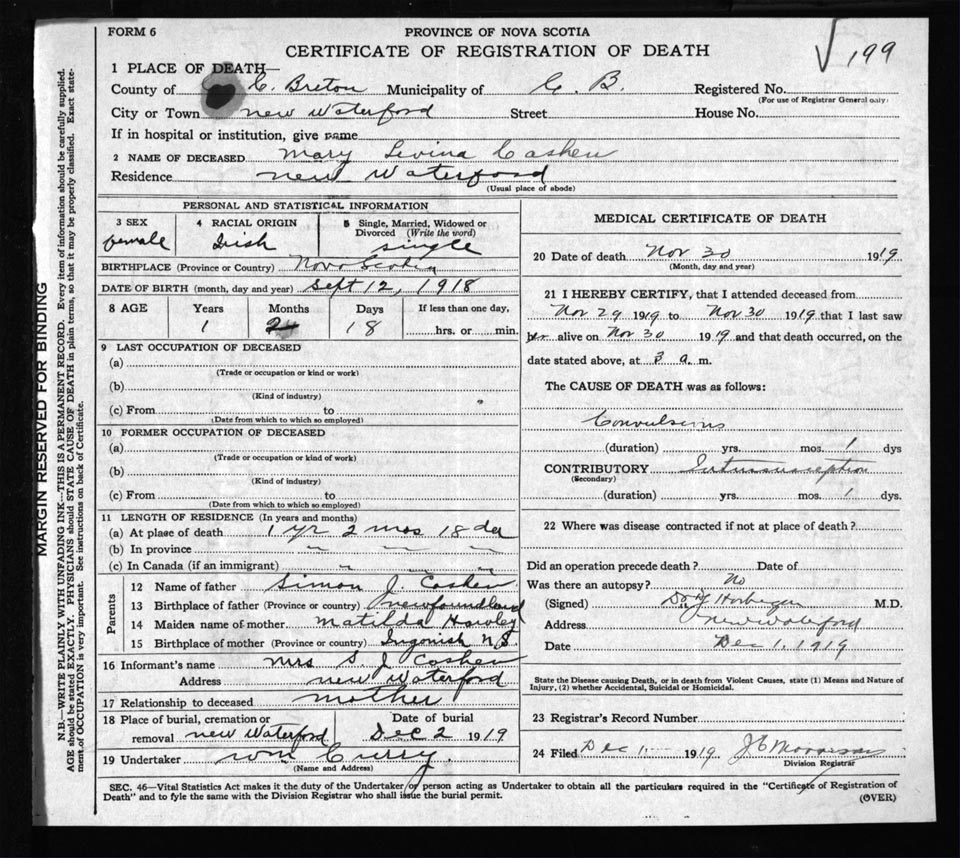 FORM 6
PROVINCE OF NOVA SCOTIA
CERTIFICATE OF REGISTRATION OF DEATH
√ 199
1 PLACE OF DEATH—
County of C. Breton Municipality of C. B. Registered No.
(For use of Registrar General only)
City or Town New Waterford Street House No.
If in hospital or institution, give name
2 NAME OF DECEASED Mary Levina Cashen
Residence New Waterford
(Usual place of abode)
PERSONAL AND STATISTICAL INFORMATION
3 SEX 4 RACIAL ORIGIN 5 Single, Married, Widowed or Divorced (Write the word)
female Irish single
BIRTHPLACE (Province or Country) Nova Scotia
DATE OF BIRTH (month, day and year) Sept 12, 1918
8 AGE Years Months Days If less than one day,
1 2 18 hrs. or min.
9 LAST OCCUPATION OF DECEASED
(a)
(Trade or occupation or kind or work)
(b)
(Kind of industry)
(c) From to
(Date from which to which so employed)
10 FORMER OCCUPATION OF DECEASED
(a)
(Trade or occupation or kind of work)
(b)
(Kind of industry)
(c) From to
(Date from which to which so employed)
11 LENGTH OF RESIDENCE (In years and months)
(a) At place of death 1 yr 2 mos 18 da
(b) In province " " "
(c) In Canada (if an immigrant) " " "
Parents
12 Name of father Simon J Cashen
13 Birthplace of father (Province or country) Newfoundland
14 Maiden name of mother Matilda Hawley
15 Birthplace of mother (Province or Country) Ingonish N.S.
16 Informant's name Mrs S J Cashen
Address New Waterford
17 Relationship to deceased mother
18 Place of burial, cremation or removal New Waterford Date of burial Dec 2 1919
19 Undertaker Wm Curry
(Name and Address)
MEDICAL CERTIFICATE OF DEATH
20 Date of death Nov 30 1919
(Month, day and year)
21 I HEREBY CERTIFY, that I attended deceased from
Nov 29 1919 to Nov 30 1919 that I last saw
her alive on Nov 30 1919 and that death occurred, on the
date stated above, at 3 a. m.
The CAUSE OF DEATH was as follows:
Convulsions
(duration) yrs. mos. 1 dys
CONTRIBUTORY Intussusception
(Secondary)
(duration) yrs. mos. 1 dys.
22 Where was disease contracted if not at place of death?
Did an operation precede death? Date of
Was there an autopsy? No
(Signed) M.D.
Address New Waterford
Date Dec 1, 1919
State the Disease causing Death, or in death from Violent Causes, state (1) Means and Nature of
Injury, (2) whether Accidental, Suicidal or Homicidal.
23 Registrar's Record Number
24 Filed Dec 1 1919
Division Registrar
SEC. 46—Vital Statistics Act makes it the duty of the Undertaker or person acting as Undertaker to obtain all the particulars required in the "Certificate of Registration of
Death" and to fyle the same with the Division Registrar who shall issue the burial permit.
(OVER)
MARGIN RESERVED FOR BINDING
N.B.—WRITE PLAINLY WITH UNFADING INK—THIS IS A PERMANENT RECORD. Every item of information should be carefully supplied.
AGE should be stated EXACTLY. PHYSICIANS should STATE CAUSE OF DEATH in plain terms, so that it may be properly classified. Exact state-
ment of OCCUPATION is very important. See instructions on back of Certificate.